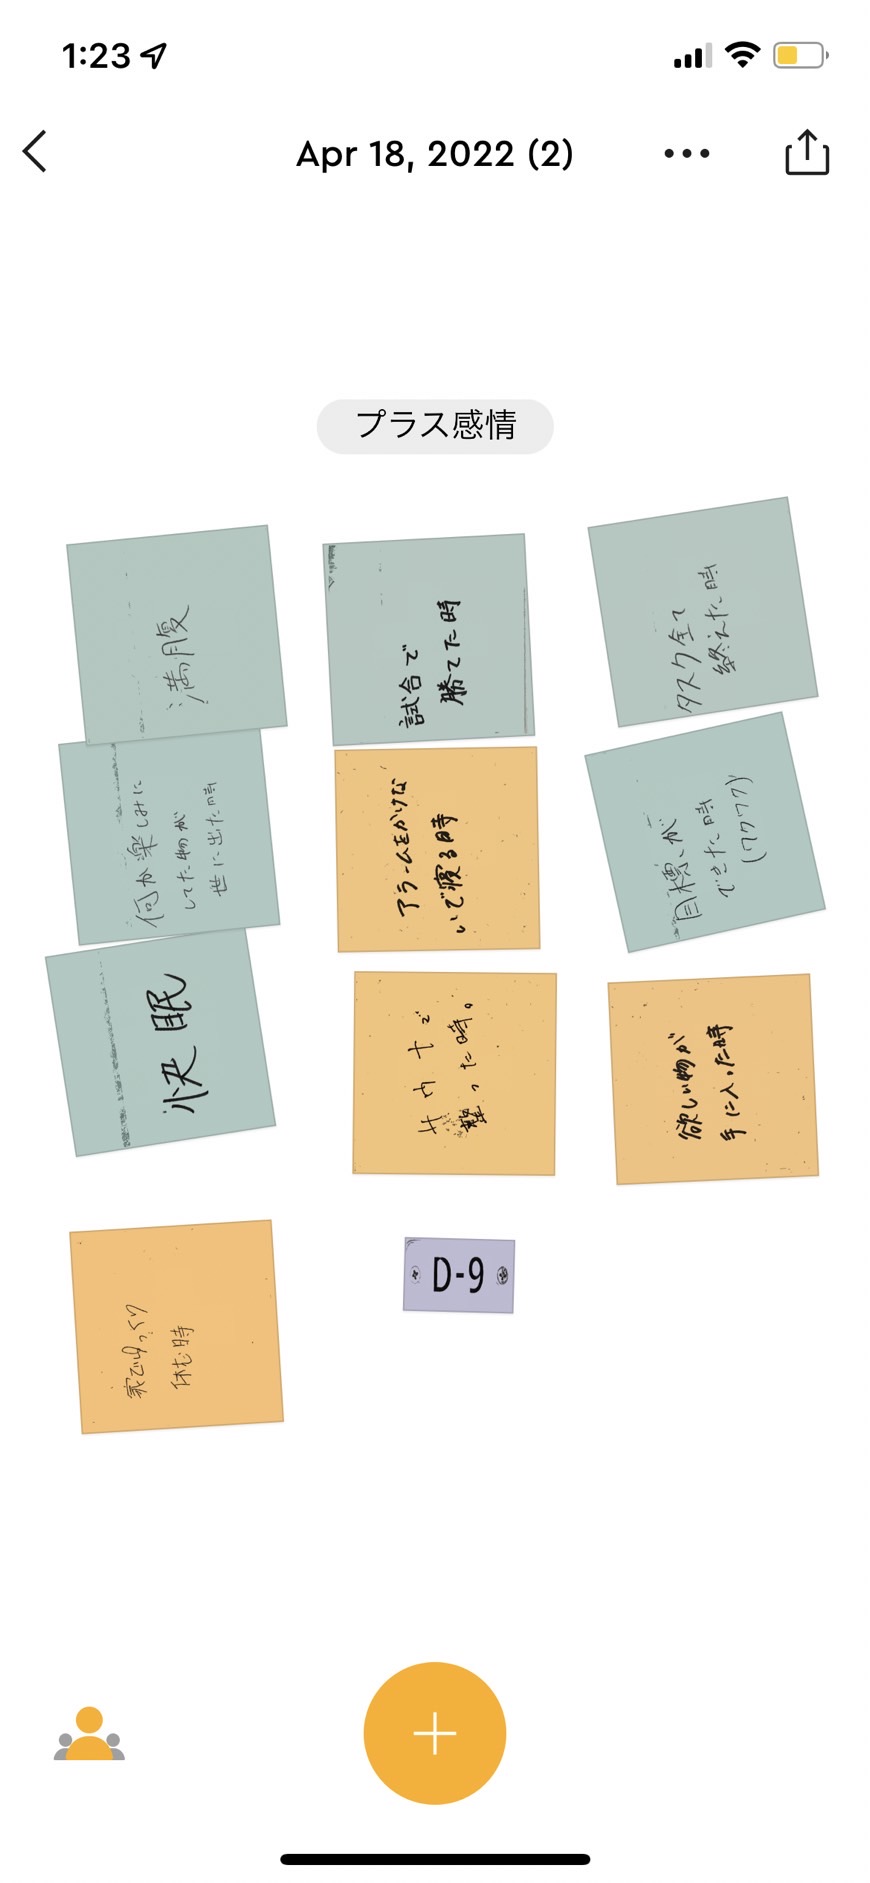 1:23
Apr 18, 2022 (2)
プラス感情
満腹
試合で
勝てた時
タスク全て
終えた時
何か楽しみに
してた物が
世に出た時
アラームをかけな
いで寝る時
目標が
できた時
(ワクワク)
快眠
サウナで
整った時。
欲しい物が
手に入った時
家でゆっくり
休む時
D-9